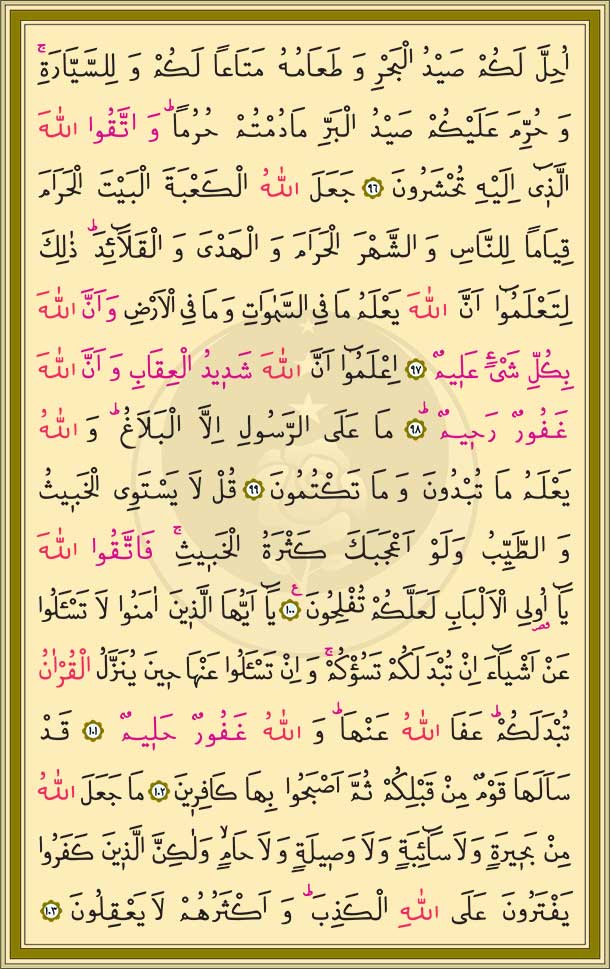 اُحِلَّ لَكُمْ صَيْدُ الْبَحْرِ وَ طَعَامُهُ مَتَاعًا لَكُمْ وَ لِلسَّيَّارَةِۚ
وَ حُرِّمَ عَلَيْكُمْ صَيْدُ الْبَرِّ مَادُمْتُمْ حُرُمًاۜ وَ اتَّقُوا اللّٰهَ
الَّذٖٓى اِلَيْهِ تُحْشَرُونَ ﴿٩٦﴾ جَعَلَ اللّٰهُ الْكَعْبَةَ الْبَيْتَ الْحَرَامَ
قِيَامًا لِلنَّاسِ وَ الشَّهْرَ الْحَرَامَ وَ الْهَدْىَ وَ الْقَلَٓائِدَۜ ذٰلِكَ
لِتَعْلَمُٓوا اَنَّ اللّٰهَ يَعْلَمُ مَا فِى السَّمٰوَاتِ وَ مَا فِى الْاَرْضِ وَ اَنَّ اللّٰهَ
بِكُلِّ شَىْءٍ عَلٖيمٌ ﴿٩٧﴾ اِعْلَمُٓوا اَنَّ اللّٰهَ شَدٖيدُ الْعِقَابِ وَ اَنَّ اللّٰهَ
غَفُورٌ رَحٖيمٌۜ ﴿٩٨﴾ مَا عَلَى الرَّسُولِ اِلَّا الْبَلَاغُۜ وَ اللّٰهُ
يَعْلَمُ مَا تُبْدُونَ وَ مَا تَكْتُمُونَ ﴿٩٩﴾ قُلْ لَا يَسْتَوِى الْخَبٖيثُ
وَ الطَّيِّبُ وَلَوْ اَعْجَبَكَ كَثْرَةُ الْخَبٖيثِۚ فَاتَّقُوا اللّٰهَ
يَٓا اُو۬لِى الْاَلْبَابِ لَعَلَّكُمْ تُفْلِحُونَ ﴿١٠٠﴾ ع يَٓا اَيُّهَا الَّذٖينَ اٰمَنُوا لَا تَسْـَٔلُوا
عَنْ اَشْيَٓاءَ اِنْ تُبْدَ لَكُمْ تَسُؤْكُمْۚ وَ اِنْ تَسْـَٔلُوا عَنْهَا حٖينَ يُنَزَّلُ الْقُرْاٰنُ
تُبْدَلَكُمْۜ عَفَا اللّٰهُ عَنْهَاۜ وَ اللّٰهُ غَفُورٌ حَلٖيمٌ ﴿١٠١﴾ قَدْ
سَاَلَهَا قَوْمٌ مِنْ قَبْلِكُمْ ثُمَّ اَصْبَحُوا بِهَا كَافِرٖينَ ﴿١٠٢﴾ مَا جَعَلَ اللّٰهُ
مِنْ بَحٖيرَةٍ وَلَا سَٓائِبَةٍ وَلَا وَصٖيلَةٍ وَلَا حَامٍۙ وَلٰكِنَّ الَّذٖينَ كَفَرُوا
يَفْتَرُونَ عَلَى اللّٰهِ الْكَذِبَۜ وَ اَكْثَرُهُمْ لَا يَعْقِلُونَ ﴿١٠٣﴾